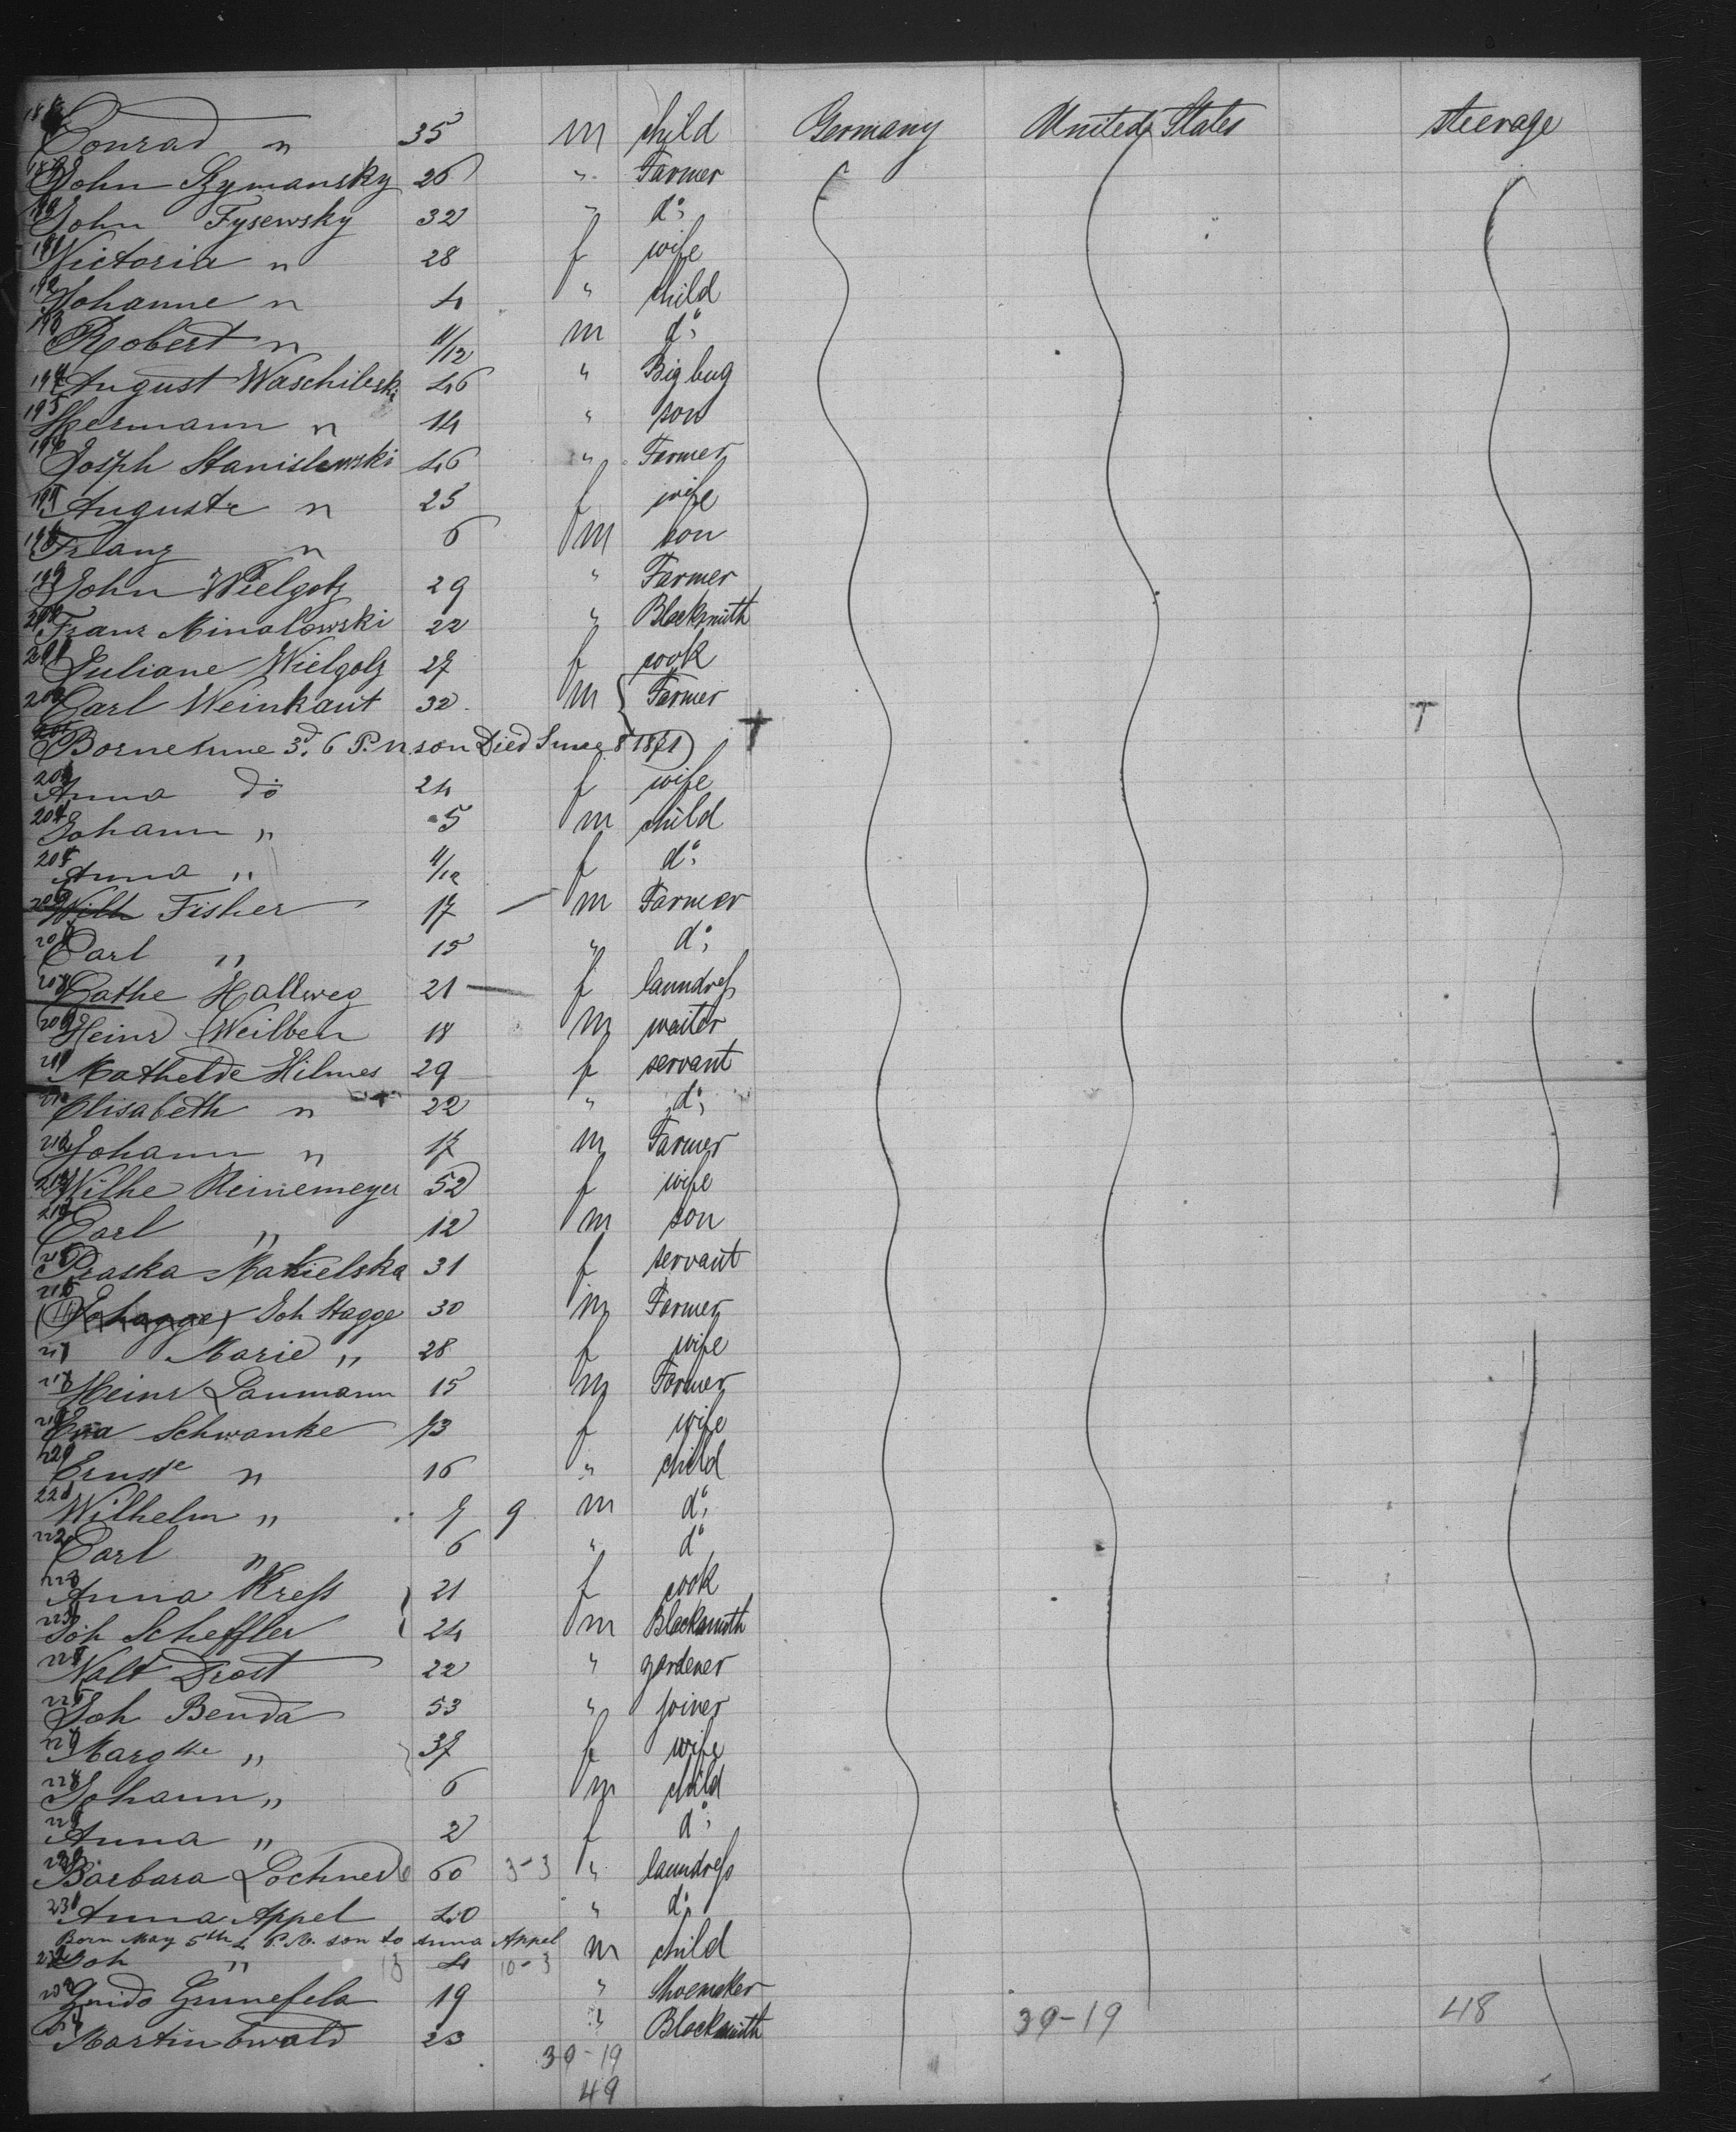 Conrad " 35 m child Germany United States steerage
John Szymansky 26 " Farmer
190 John Fysewsky 32 " do
191 Victoria " 28 f wife
192 Johanne " 4 " child
193 Robert " 11/12 m do
194 August Waschileski 46 " Big bug
195 Hermann " 14 " son
196 Josph Stanislewski 46 " Farmer
197 Auguste " 25 f wife
198 Franz " 6 m son
199 John Wielgolz 29 " Farmer
200 Franz Minalowski 22 " Blacksmith
201 Juliane Wielgolz 27 f cook
202 Carl Weinkaut 32 m Farmer
Born June 3d. 6 P.M. son Died June 8 1871
203 Anna do 24 f wife
204 Johann " 5 m child
205 Anna " 11/12 f do
206 Wilh Fisher 17 m Farmer
207 Carl " 15 " do
208 Cathe Hallweg 21 f laundress
209 Heinr Weilben 18 m waiter
210 Mathelde Hilmes 29 f servant
211 Elisabeth " 22 " do
212 Johann " 17 m Farmer
213 Wilhe Reinemeyer 52 f wife
214 Carl " 12 m son
215 Praska Makielska 31 f servant
216 Joh Hagge 30 m Farmer
217 Marie " 28 f wife
218 Heinr Laumann 15 m Farmer
219 Eva Schwanke 43 f wife
220 Ernste " 16 " child
221 Wilhelm " 7 9 m do
222 Carl " 6 " do
223 Anna Kress 21 f cook
224 Joh Scheffler 24 m Blacksmith
225 Nalt Drost 22 " gardener
226 Joh Benda 53 " joiner
227 Margthe " 37 f wife
228 Johann " 6 m child
229 Anna " 2 f do
230 Barbara Lochner 60 3-3 " laundress
231 Anna Appel 40 " do
Born May 5th 4 P.M. son to Anna Appel
232 Joh " 4 10-3 m child
233 Guido Grunefela 19 " Shoemaker
Martin Ewald 23 " Blacksmith 30-19 48
30-19
49